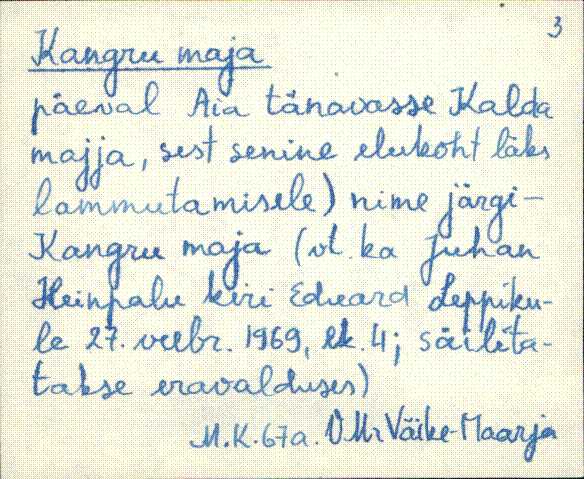 3
Kangru maja
päeval Aia tänavasse Kalda
majja, sest senine elukoht läks
lammutamisele) nime järgi-
Kangru maja (vt. ka Juhan
Heinpalu kiri Eduard Leppiku-
le 27. veebr. 1969, lk. 4; säilita-
takse eravalduses)
M.K. 67a. V. Mr Väike-Maarja